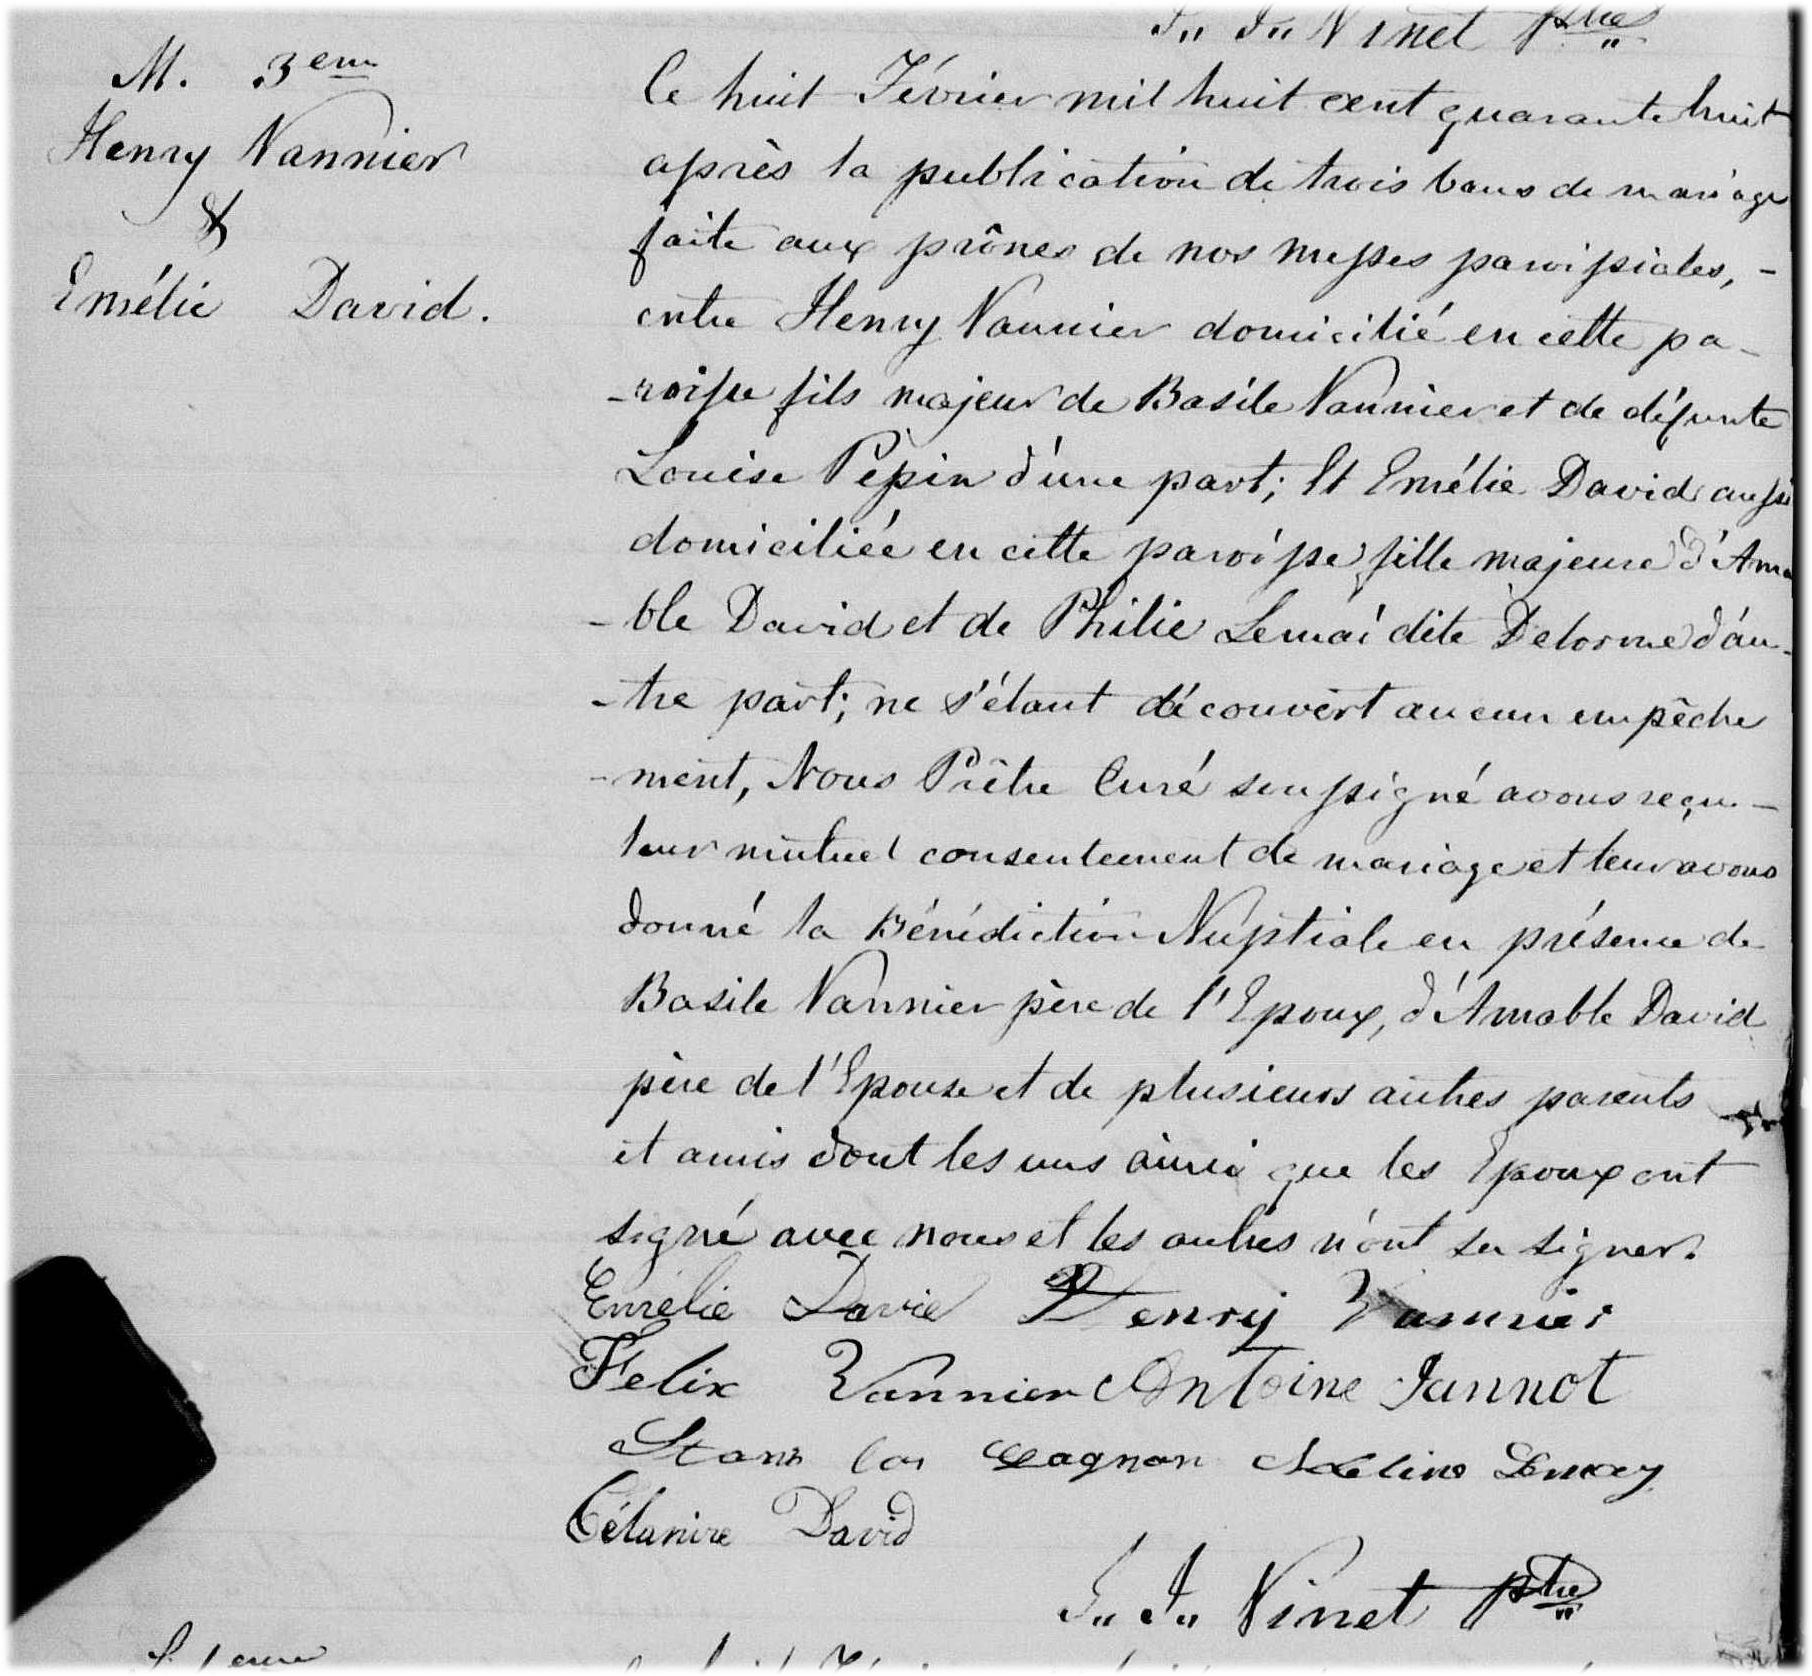 J,, J,, Vinet Ptre
M. 3eme
Henry Vannier
&
Emélie David.
Ce huit Février mil huit cent quarante huit
après la publication de trois bans de mariage
faite aux prônes de nos messes paroissiales, -
entre Henry Vannier domicilié en cette pa-
-roisse fils majeur de Basile Vannier et de défunte
Louise Pepin d'une part; Et Emélie David aussi
domiciliée en cette paroisse, fille majeure d'Ama
-ble David et de Philie Lemai dite Delorme d'au-
-tre part; ne s'étant découvert aucun empêche
-ment, Nous Prêtre Curé soussigné avons reçu -
leur mutuel consentement de mariage et leur avons
donné la Bénédiction Nuptiale en présence de
Basile Vannier père de l'Epoux, d'Amable David
père de l'Epouse et de plusieurs autres parents
et amis dont les uns ainsi que les Epoux ont
signé avec nous et les autres n'ont su signer.
Emélie David Henry Vannier
Felix Vannier Antoine Jannot
Stanis las Gagnon Adeline Lemay
Célanire David
J,, J,, Vinet Ptre